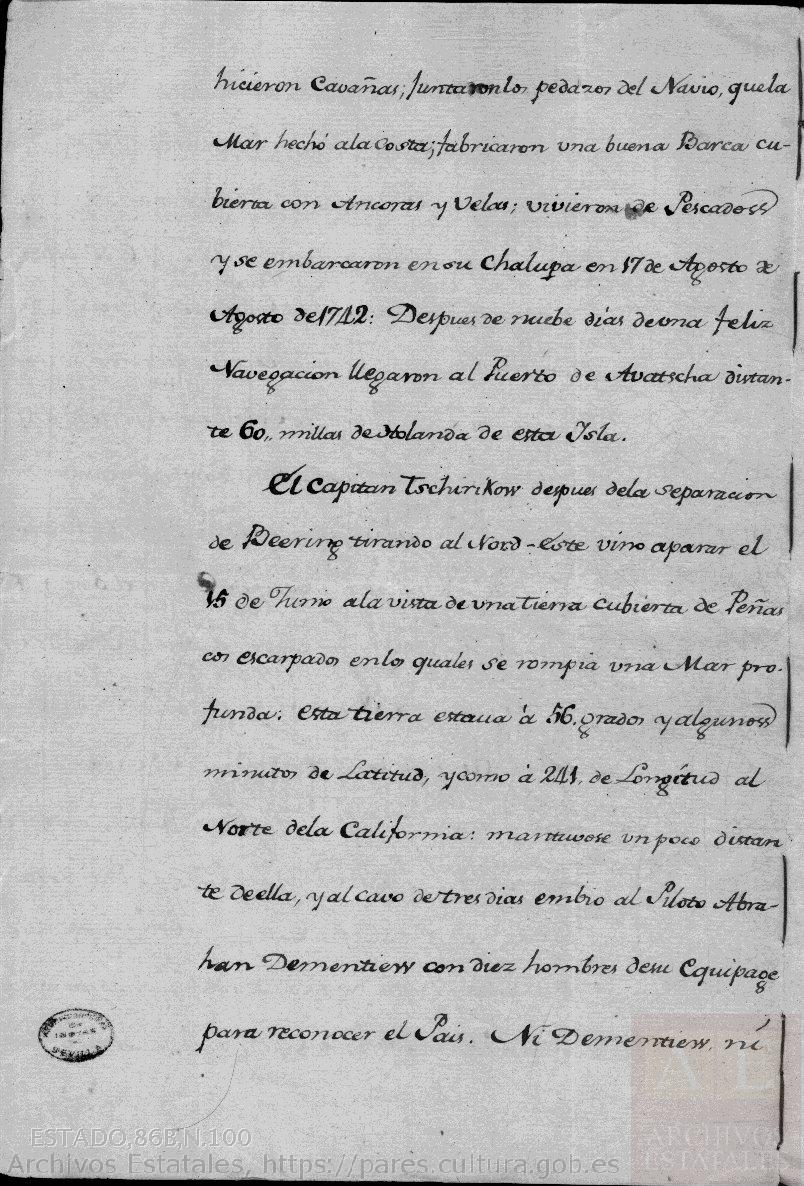 hicieron Cavañas; Juntaron los pedazos del Navio, que la
Mar hechó a la Costa; fabricaron una buena Barca cu-
bierta con Ancoras y Velas; vivieron de Pescados
y se embarcaron en su Chalupa en 17 de Agosto de
Agosto de 1742: Despues de nuebe días de una feliz
Navegacion llegaron al Puerto de Avatscha distan-
te 60,, millas de Holanda de esta Isla.
El Capitan Tschirikow despues de la separacion
de Beering tirando al Nord-Este vino aparar el
15 de Junio a la vista de una tierra cubierta de Peñas
cos escarpados en los quales se rompia una Mar pro-
funda: esta tierra estaua à 56. grados y algunos
minutos de Latitud, y como à 241. de Longitud al
Norte de la California: mantuvose un poco distan
te de ella, y al cavo de tres dias embio al Piloto Abra-
han Dementiew con diez hombres de su Equipage
para reconocer el Pais. Ni Dementiew, ni
SEVILLA
ESTADO,86B,N.100
Archivos Estatales, https://pares.cultura.gob.es
AE
ARCHIVOS
ESTATALES